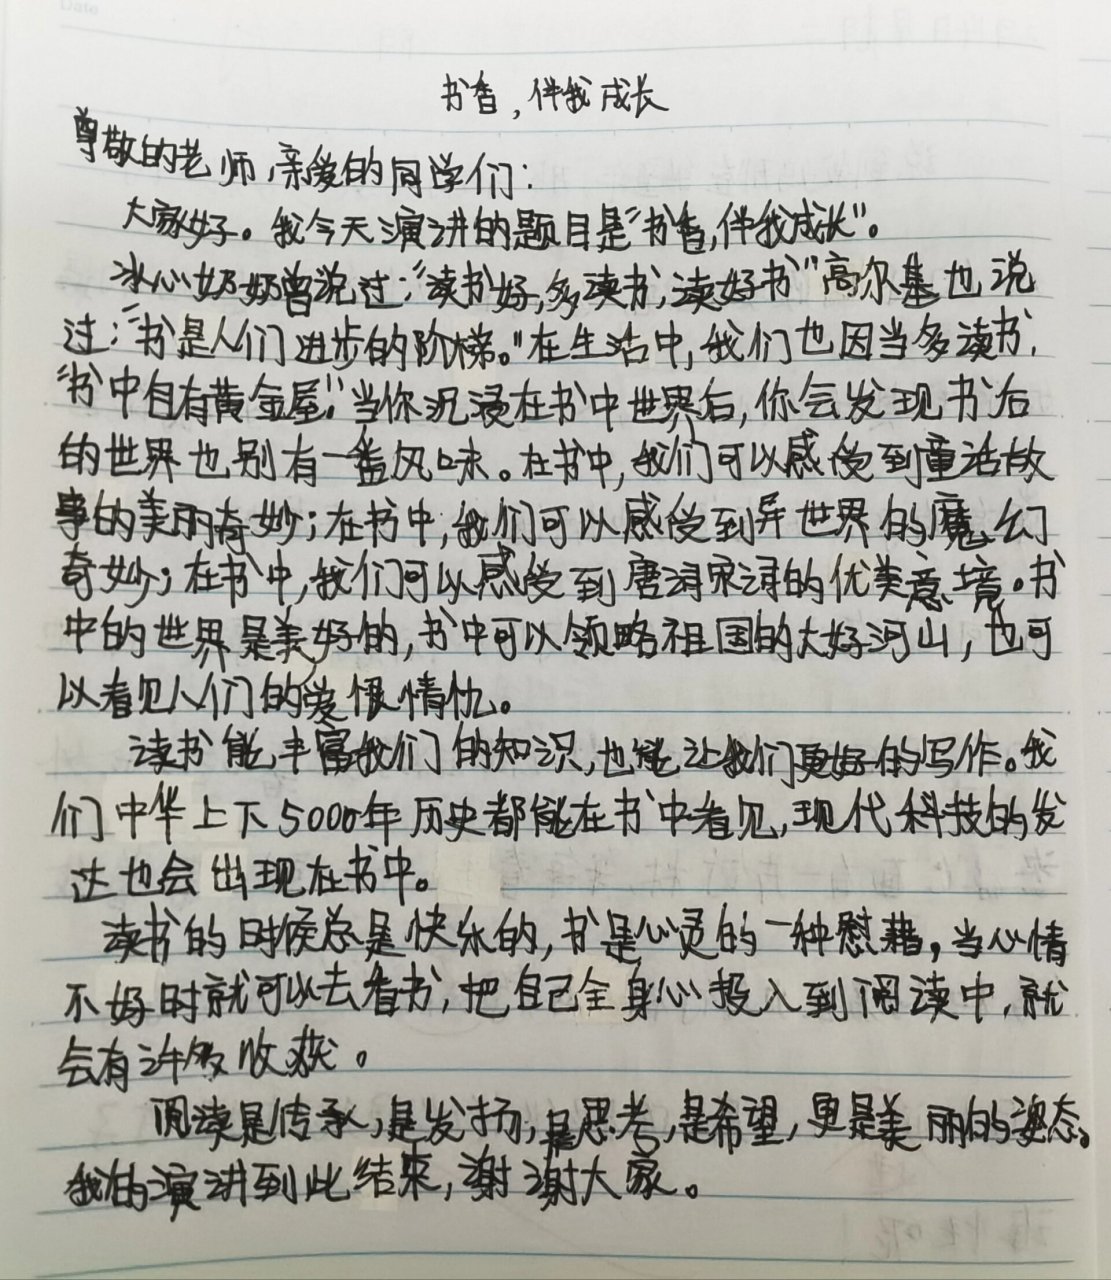 书香,伴我成长
尊敬的老师,亲爱的同学们:
大家好。我今天演讲的题目是“书香,伴我成长”。
冰心奶奶曾说过:“读书好,多读书,读好书”高尔基也说
过:“书是人们进步的阶梯。”在生活中,我们也因当多读书,
“书中自有黄金屋”,当你沉浸在书中世界后,你会发现书后
的世界也别有一番风味。在书中,我们可以感受到童话故
事的美丽奇妙;在书中,我们可以感受到异世界的魔幻
奇妙;在书中,我们可以感受到唐词宋词的优美意境。书
中的世界是美好的,书中可以领略祖国的大好河山,也可
以看见人们的爱恨情仇。
读书能丰富我们的知识,也能让我们更好的写作。我
们中华上下5000年历史都能在书中看见,现代科技的发
达也会出现在书中。
读书的时候总是快乐的,书是心灵的一种慰藉,当心情
不好时就可以去看书,把自己全身心投入到阅读中,就
会有许多收获。
阅读是传承,是发扬,是思考,是希望,更是美丽的姿态。
我的演讲到此结束,谢谢大家。